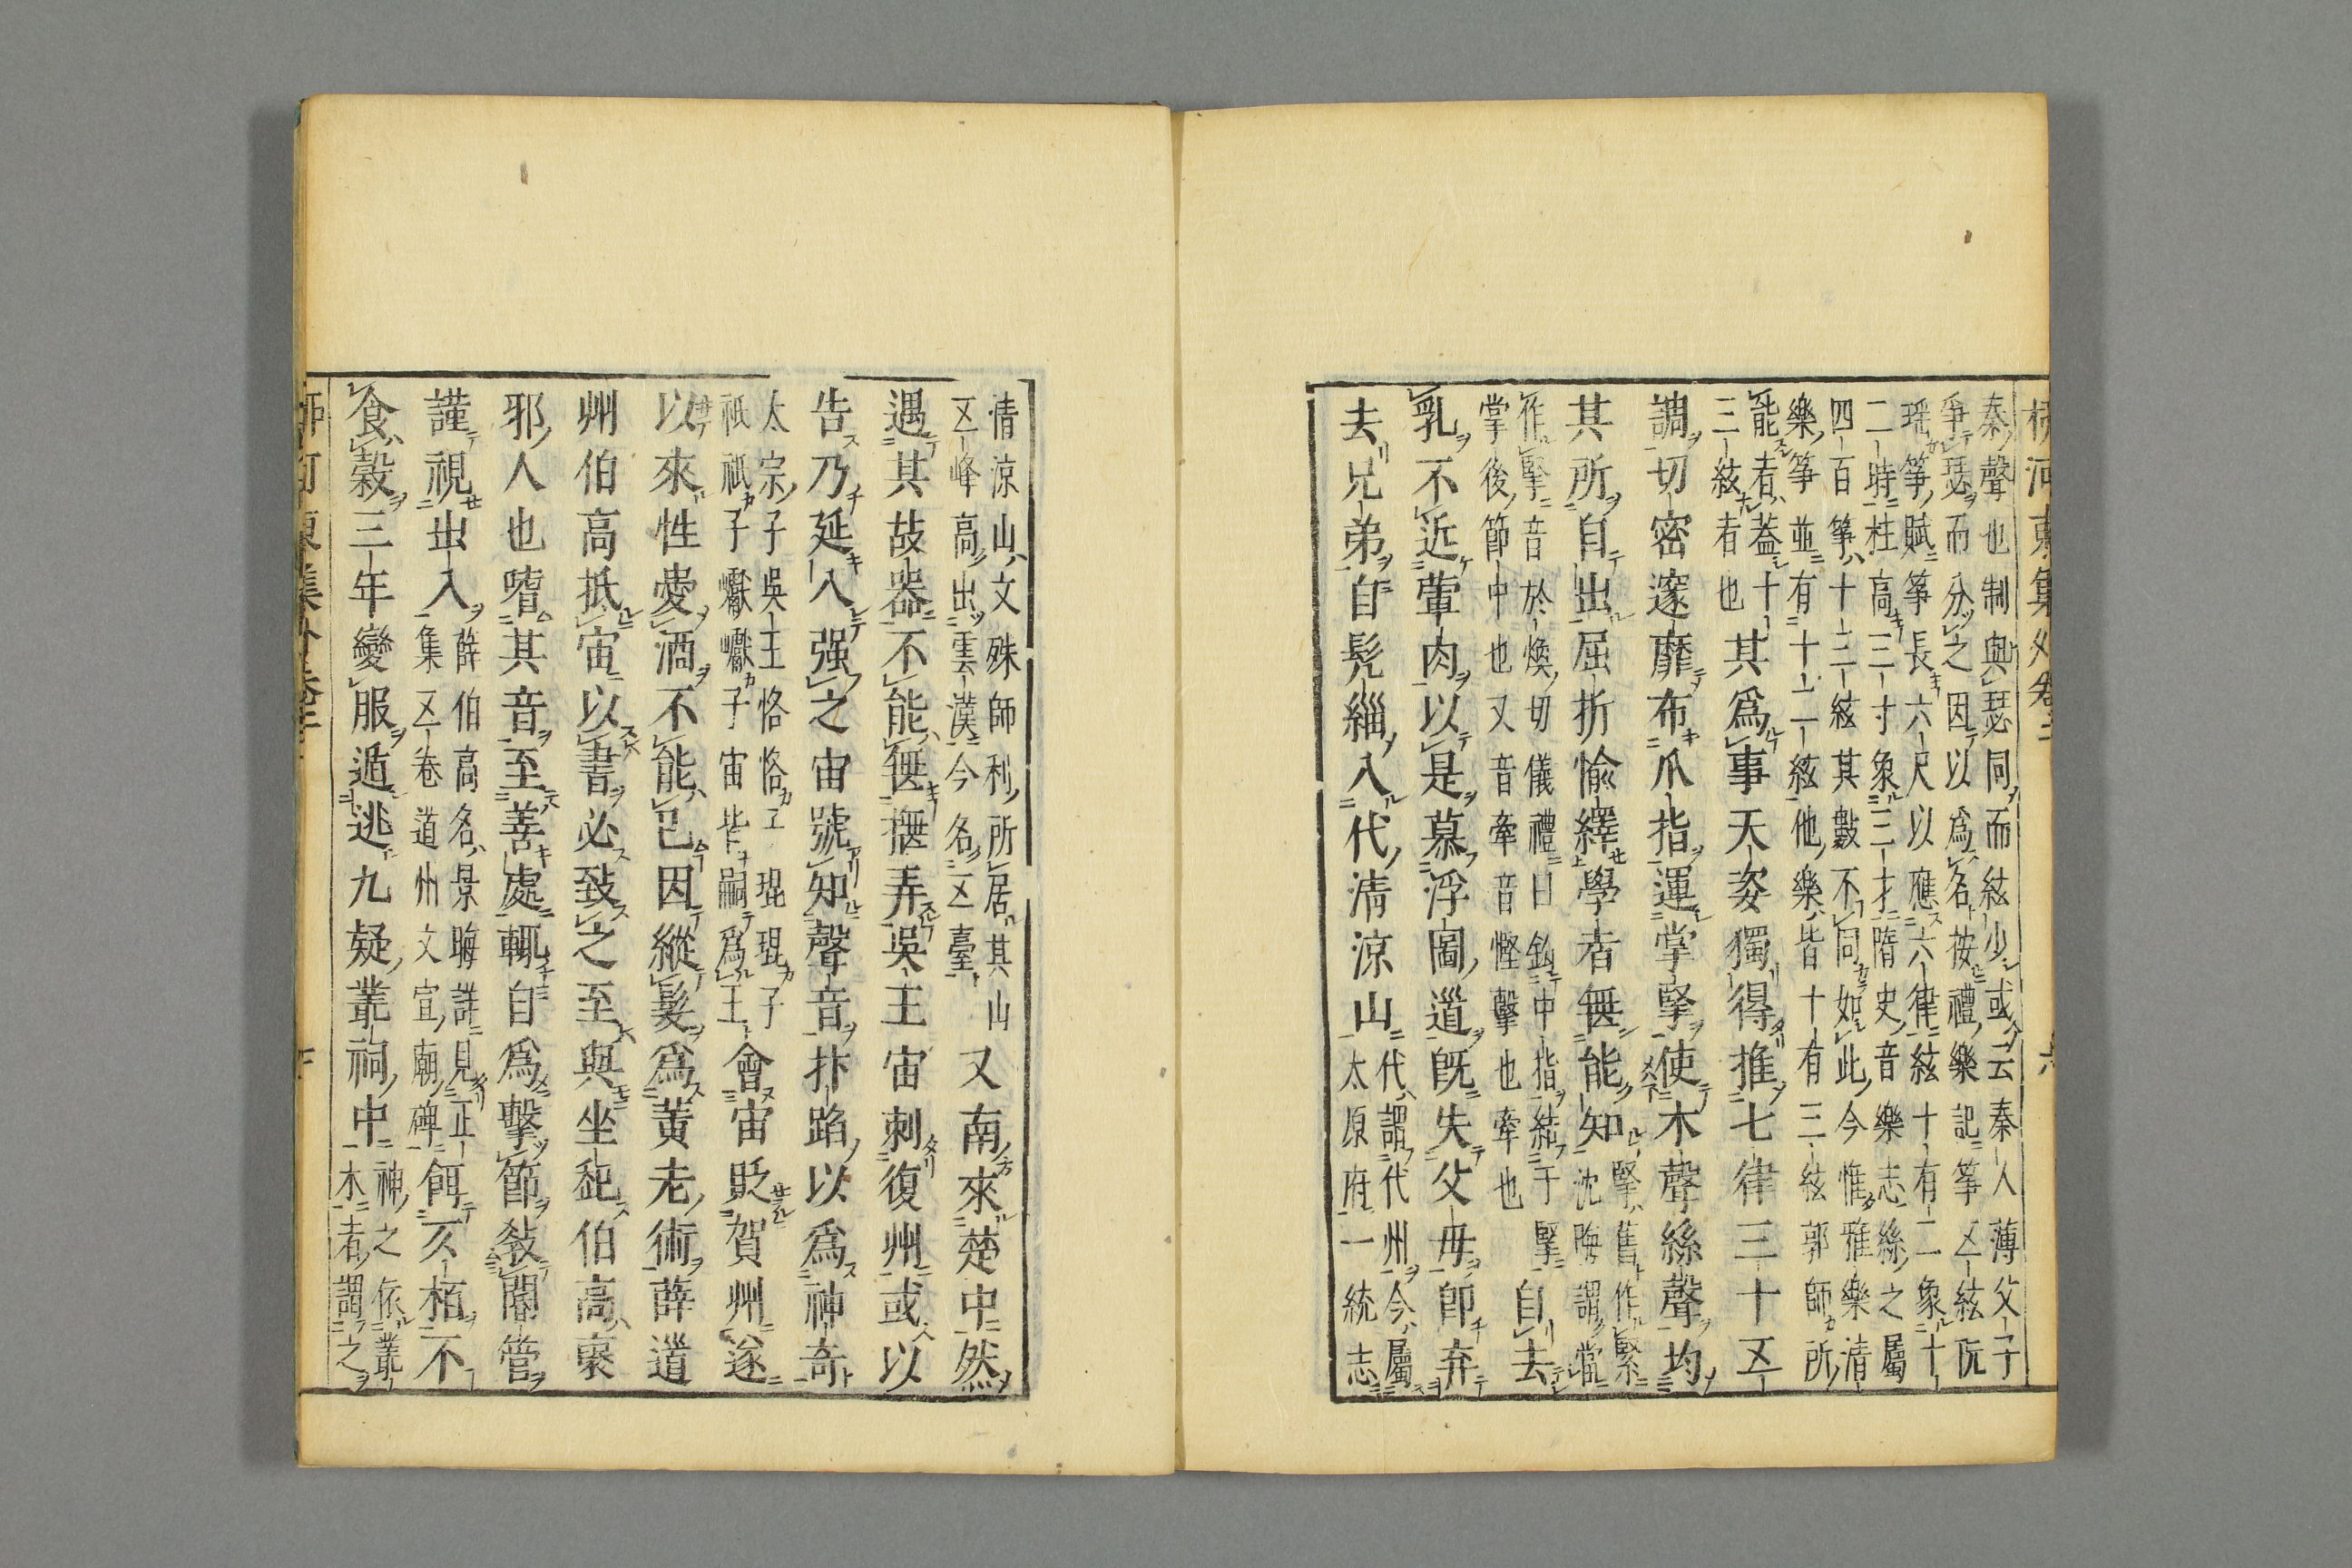 柳河東集外卷上 六
秦聲也制與瑟同而絃少或云秦人薄父子
爭瑟而分之因以爲名按禮樂記筝五絃阮
瑶筝賦筝長六尺以應六律絃十有二象十
二時柱高三寸象三才隋史音樂志絲之屬
四百筝十三絃其數不同如此今惟雅樂清
樂筝並有十二絃他樂皆十有三絃郭師所
能者蓋十
三絃者也
其爲事天姿獨得推七律三十五
調切密邃靡布爪指運掌掔使木聲絲聲均
其所自出屈折愉繹學者無能知
掔舊作緊
沈晦謂當
作掔音於煥切儀禮曰鈎中指結于掔
掌後節中也又音牽音慳擊也牽也
自去
乳不近葷肉以是慕浮圖道既失父毋即弃
去兄弟自髡緇入代清涼山
代謂代州今屬
太原府一統志
清涼山文殊師利所居其山
五峰高出雲漢今名五臺
又南來楚中然
遇其故器不能無撫弄吳王宙刺復州或以
告乃延入强之宙號知聲音抃蹈以爲神奇
太宗子吳王恪恪子琨琨子
祇祇子巘巘子宙皆嗣爲王
會宙貶賀州遂
以來性愛酒不能已因縱髮爲黄老術薛道
州伯高抵宙以書必致之至與坐䂆伯高褱
邪人也嗜其音至善處輒自爲擊節敎闇管
謹視出入
薛伯高名景晦詳見正
集五卷道州文宣廟碑
餌亥栢不
食穀三年變服遁逃九疑叢祠中
神之依叢
木者謂之